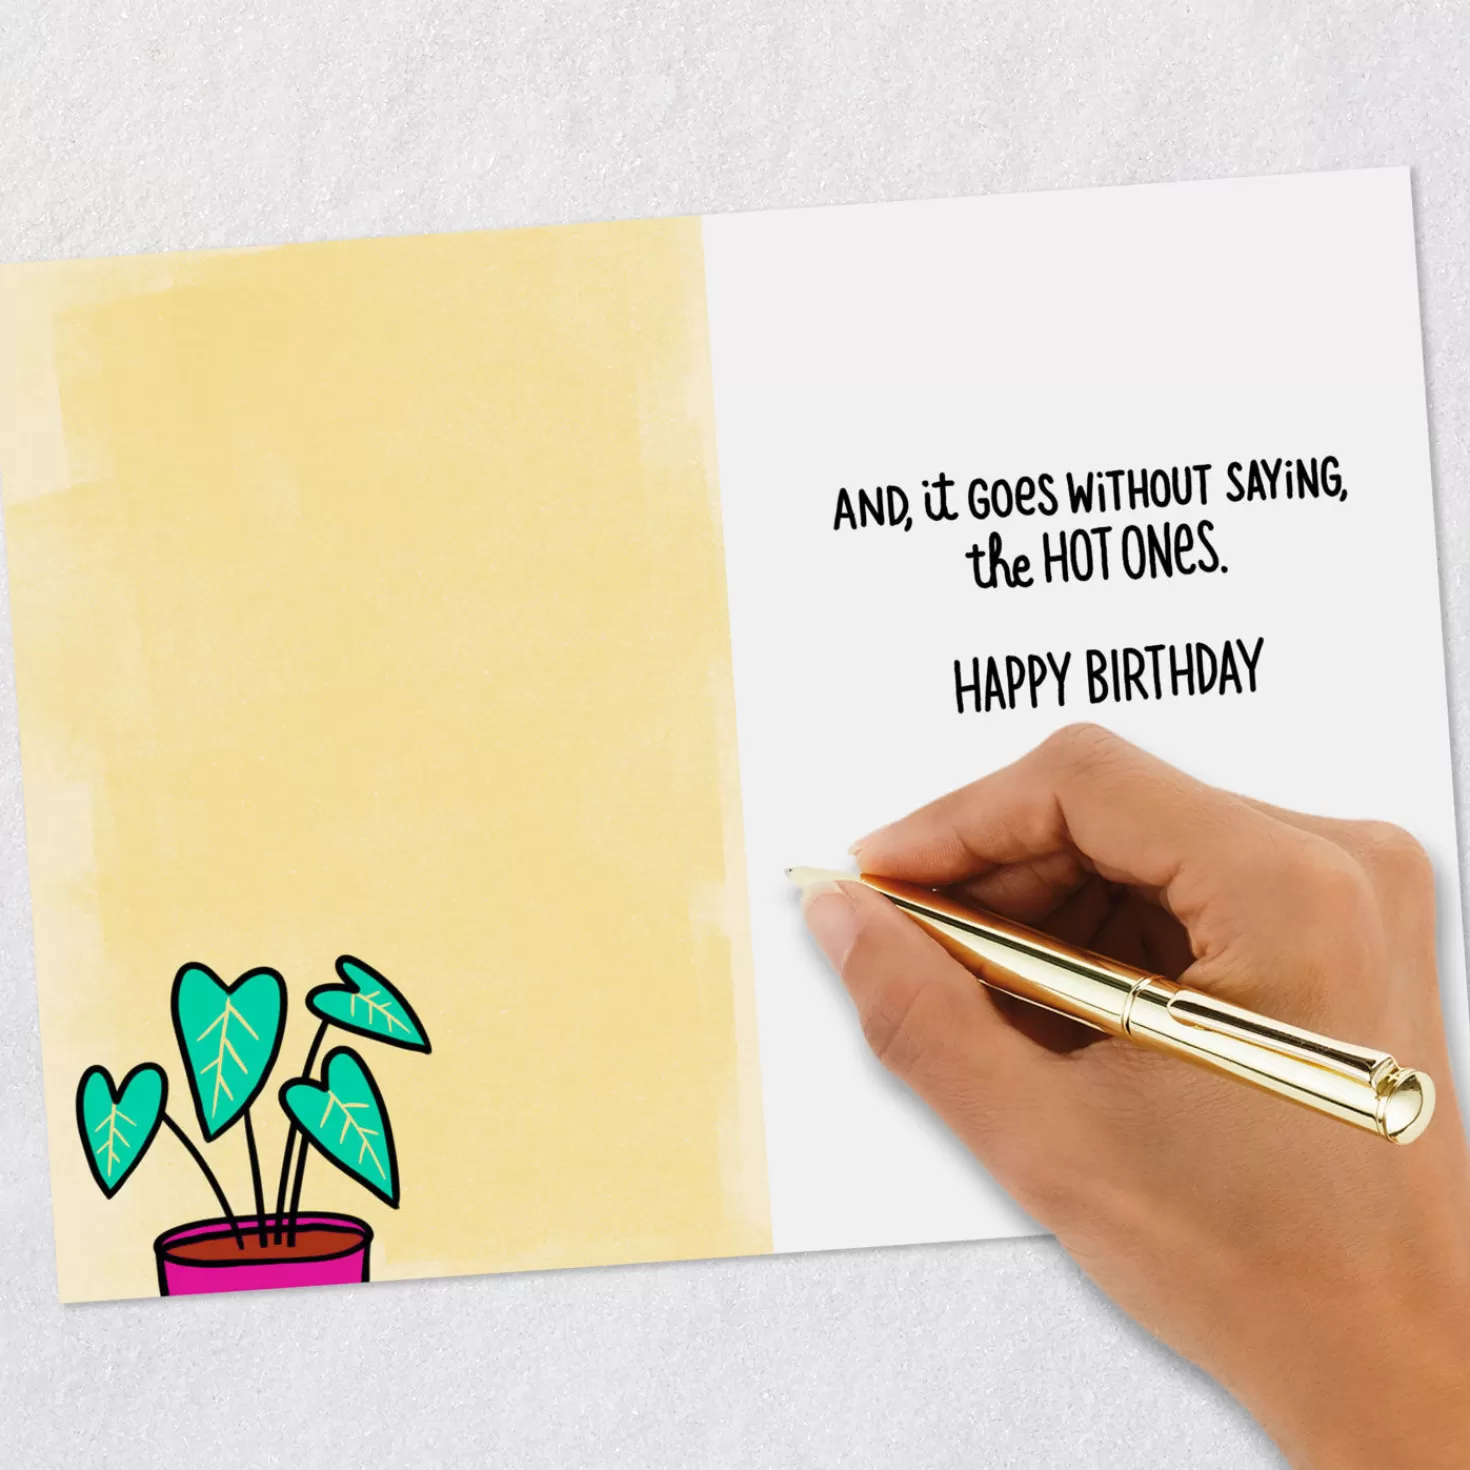 AND, it GOeS WiTHOUT SAYiNG,
the HOT ONeS.
HAPPY BIRTHDAY